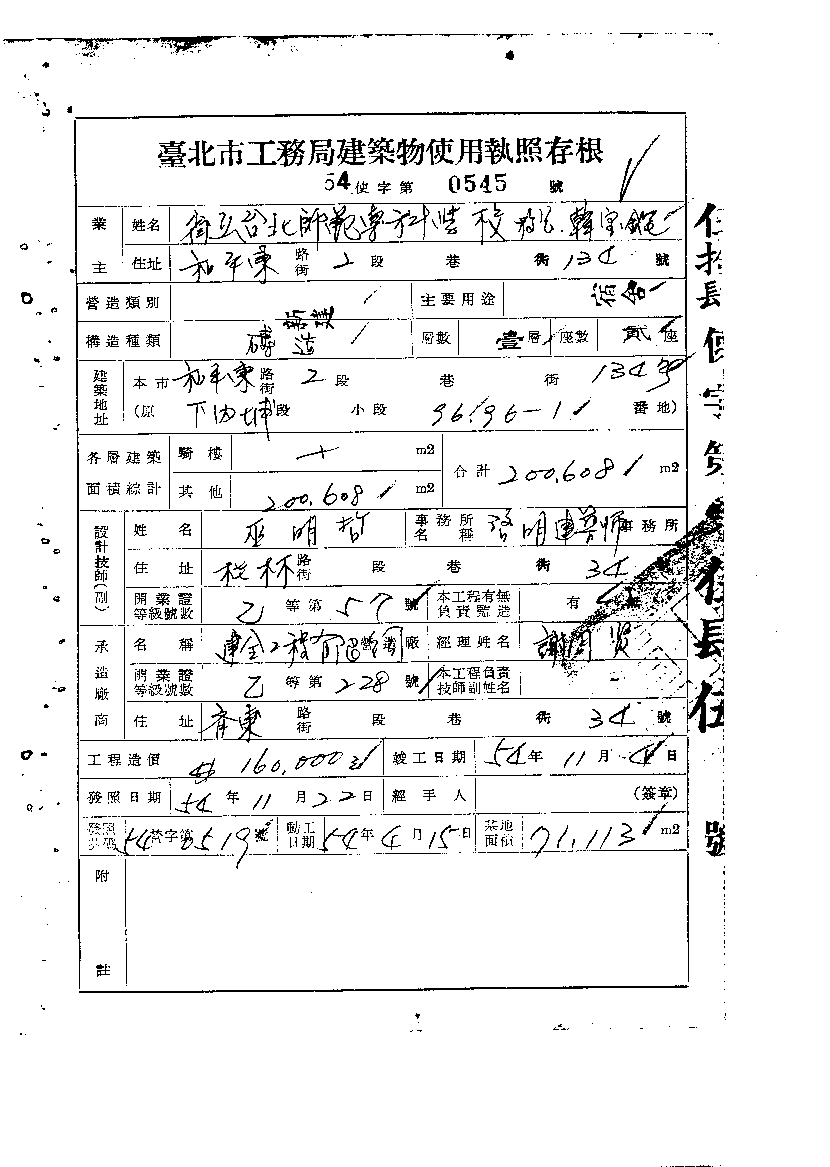 臺北市工務局建築物使用執照存根
54使字第 0545 號
業主 姓名 省立台北師範專科學校 校長 韓宝鑑
住址 和平東路街 2段 巷 街 134 號
營造類別 新建 主要用途 宿舍
構造種類 磚造 層數 壹層 座數 貳座
建築地址 本市 和平東路街 2段 巷 街 134号
(原 下内埔段 小段 96.96-1 番地)
各層建築面積綜計 騎樓 m2 合計 200.608 m2
其他 200.608 m2
設計技師(副) 姓名 巫明哲 事務所名稱 啓明建築師事務所
住址 桂林路街 段 巷 街 34號
開業證等級號數 乙等第57號 本工程有無負責監造 有
承造廠商 名稱 建全工程 廠 經理姓名 謝 賢
開業證等級號數 乙等第228號 本工程負責技師副姓名
住址 齊東路街 段 巷 街 34號
工程造價 160,000 竣工日期 54年11月4日
發照日期 54年11月22日 經手人 (簽章)
發照號碼 54營字第0519號 動工日期 54年4月15日 基地面積 71.113 m2
附註
伍拾肆使字第 伍肆伍 號